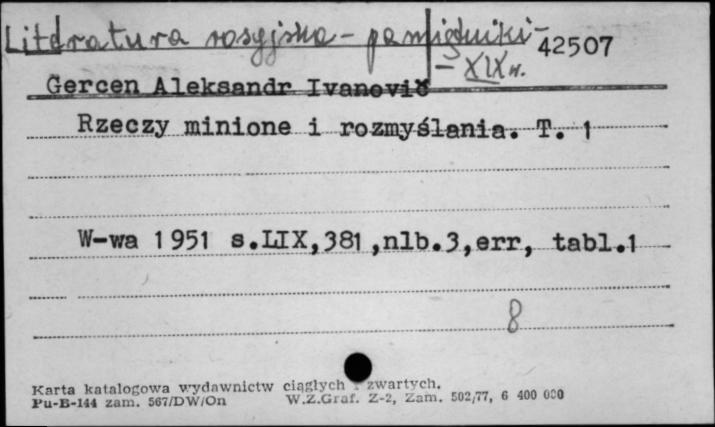 Litdratura rosyjska - pamiętniki -
- XIX w.
42507
Gercen Aleksandr Ivanovič
Rzeczy minione i rozmyślania. T. 1
W-wa 1951 s.LIX,381,nlb.3,err, tabl.1
8
Karta katalogowa wydawnictw ciągłych i zwartych.
Pu-B-144 zam. 567/DW/On W.Z.Graf. Z-2, Zam. 502/77, 6 400 000